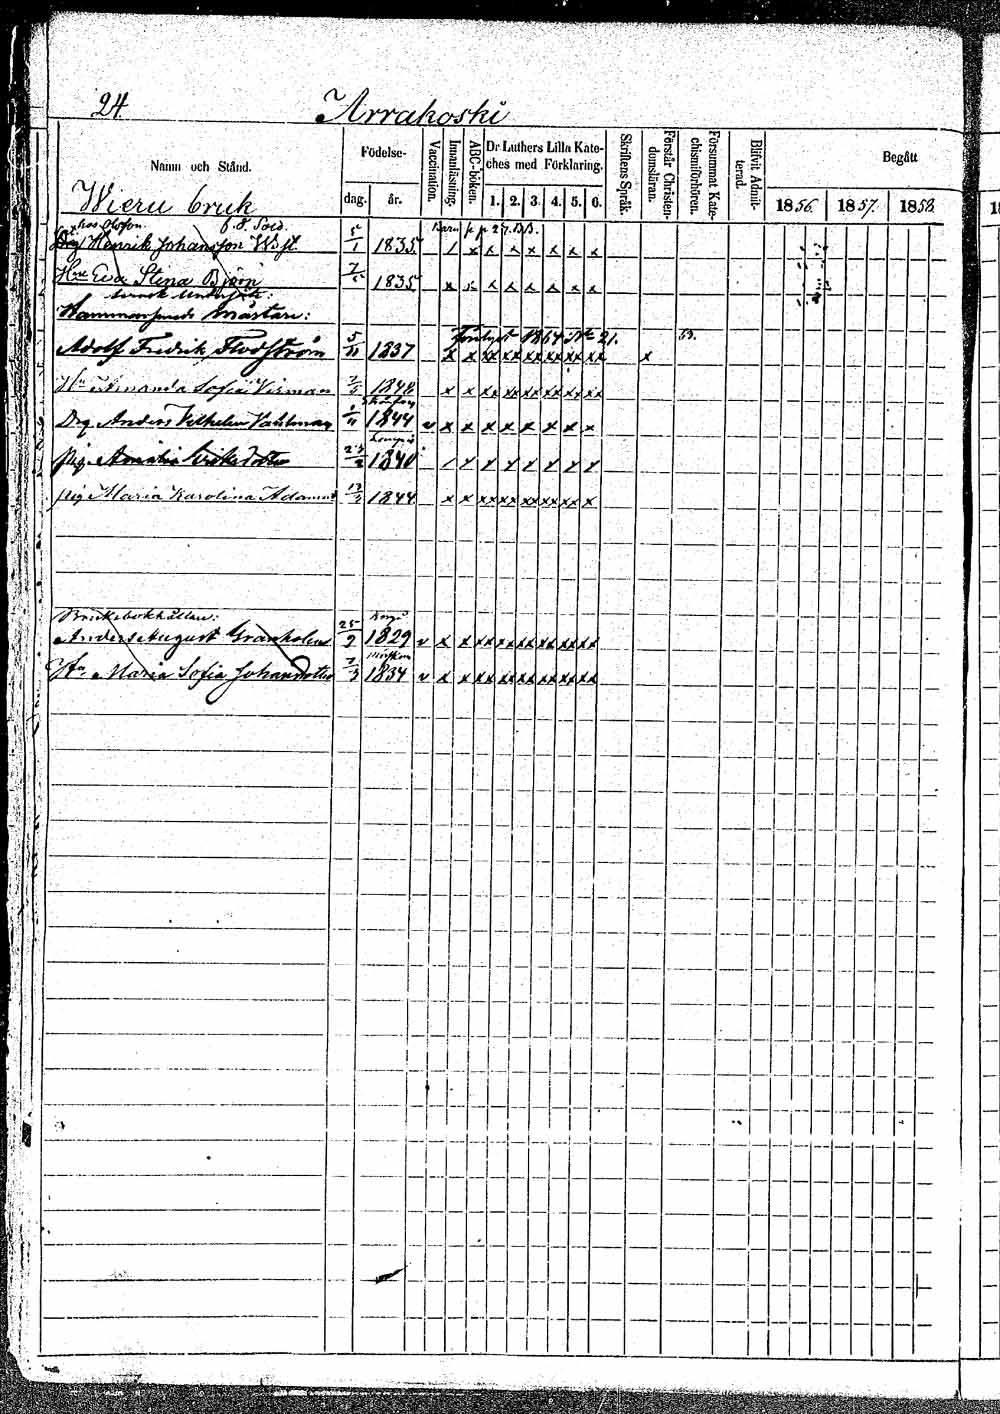 24.
Arrakoski
Namn och Stånd.
Födelse-
dag. år.
Vaccination.
Innanläsning.
ABC-boken.
Dr Luthers Lilla Kate-
ches med Förklaring.
1. 2. 3. 4. 5. 6.
Skriftens Språk.
Förstår Christen-
domsläran.
Försummat Kate-
chismiförhören.
Blifvit Admit-
terad.
Begått
1856. 1857. 1858.
Wieru bruk
hos Olofson
Henrik Johansson 5/1 1835. / x x x x x x x
Eva Stina Björn 7/5 1835. x x x x x x x
mästare:
Förlyst 1864 21. 63.
Adolf Fredrik Flodström 5/11 1837 x x xx xx xx xx xx xx x
Amanda Sofia 1842 x x xx xx xx xx xx xx
Drg. Anders Vilhelm 1844 v x x x x x x x x
pig. Amalia Eriksdotter 23/2 1840
pig Maria Karolina 12/2 1844. x x xx xx xx xx xx x
Bruksbokhållare:
Anders August Granholm 25/9 1829 v x x xx xx xx xx xx xx
Maria Sofia Johansdotter 7/3 1834 v x x xx xx xx xx xx xx